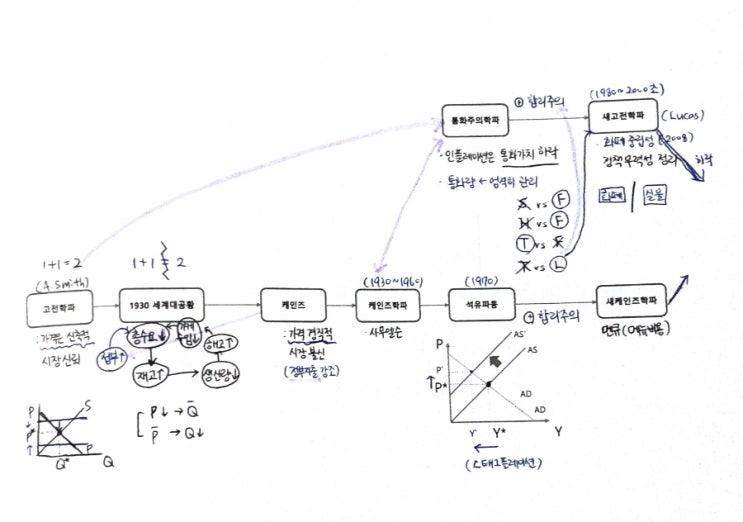 (1980~2000초)
통화주의학파
⊕ 합리주의
새고전학파
(Lucas)
· 인플레이션은 통화가치 하락
· 통화량 ← 엄격히 관리
· 화폐 중립성 (2008)
정책무력성 정리
하락
화폐 / 실물
S vs F
N vs F
T vs F
K vs L
1+1=2
(A.Smith)
1+1 = 2
(1930~1960)
(1970)
고전학파
1930 세계대공황
케인즈
케인즈학파
석유파동
⊕ 합리주의
새케인즈학파
: 가격은 신축적
시장신뢰
: 가격 경직적
시장 불신
(정부지출 강조)
· 사무엘슨
총수요↓
해고↑
재고↑
생산량↓
P↓ → Q̄
P̄ → Q↓
P
P*
S
Q*
Q
P
P'
↑P*
AS'
AS
AD
AD
Y'
Y*
Y
←
(스태그플레이션)